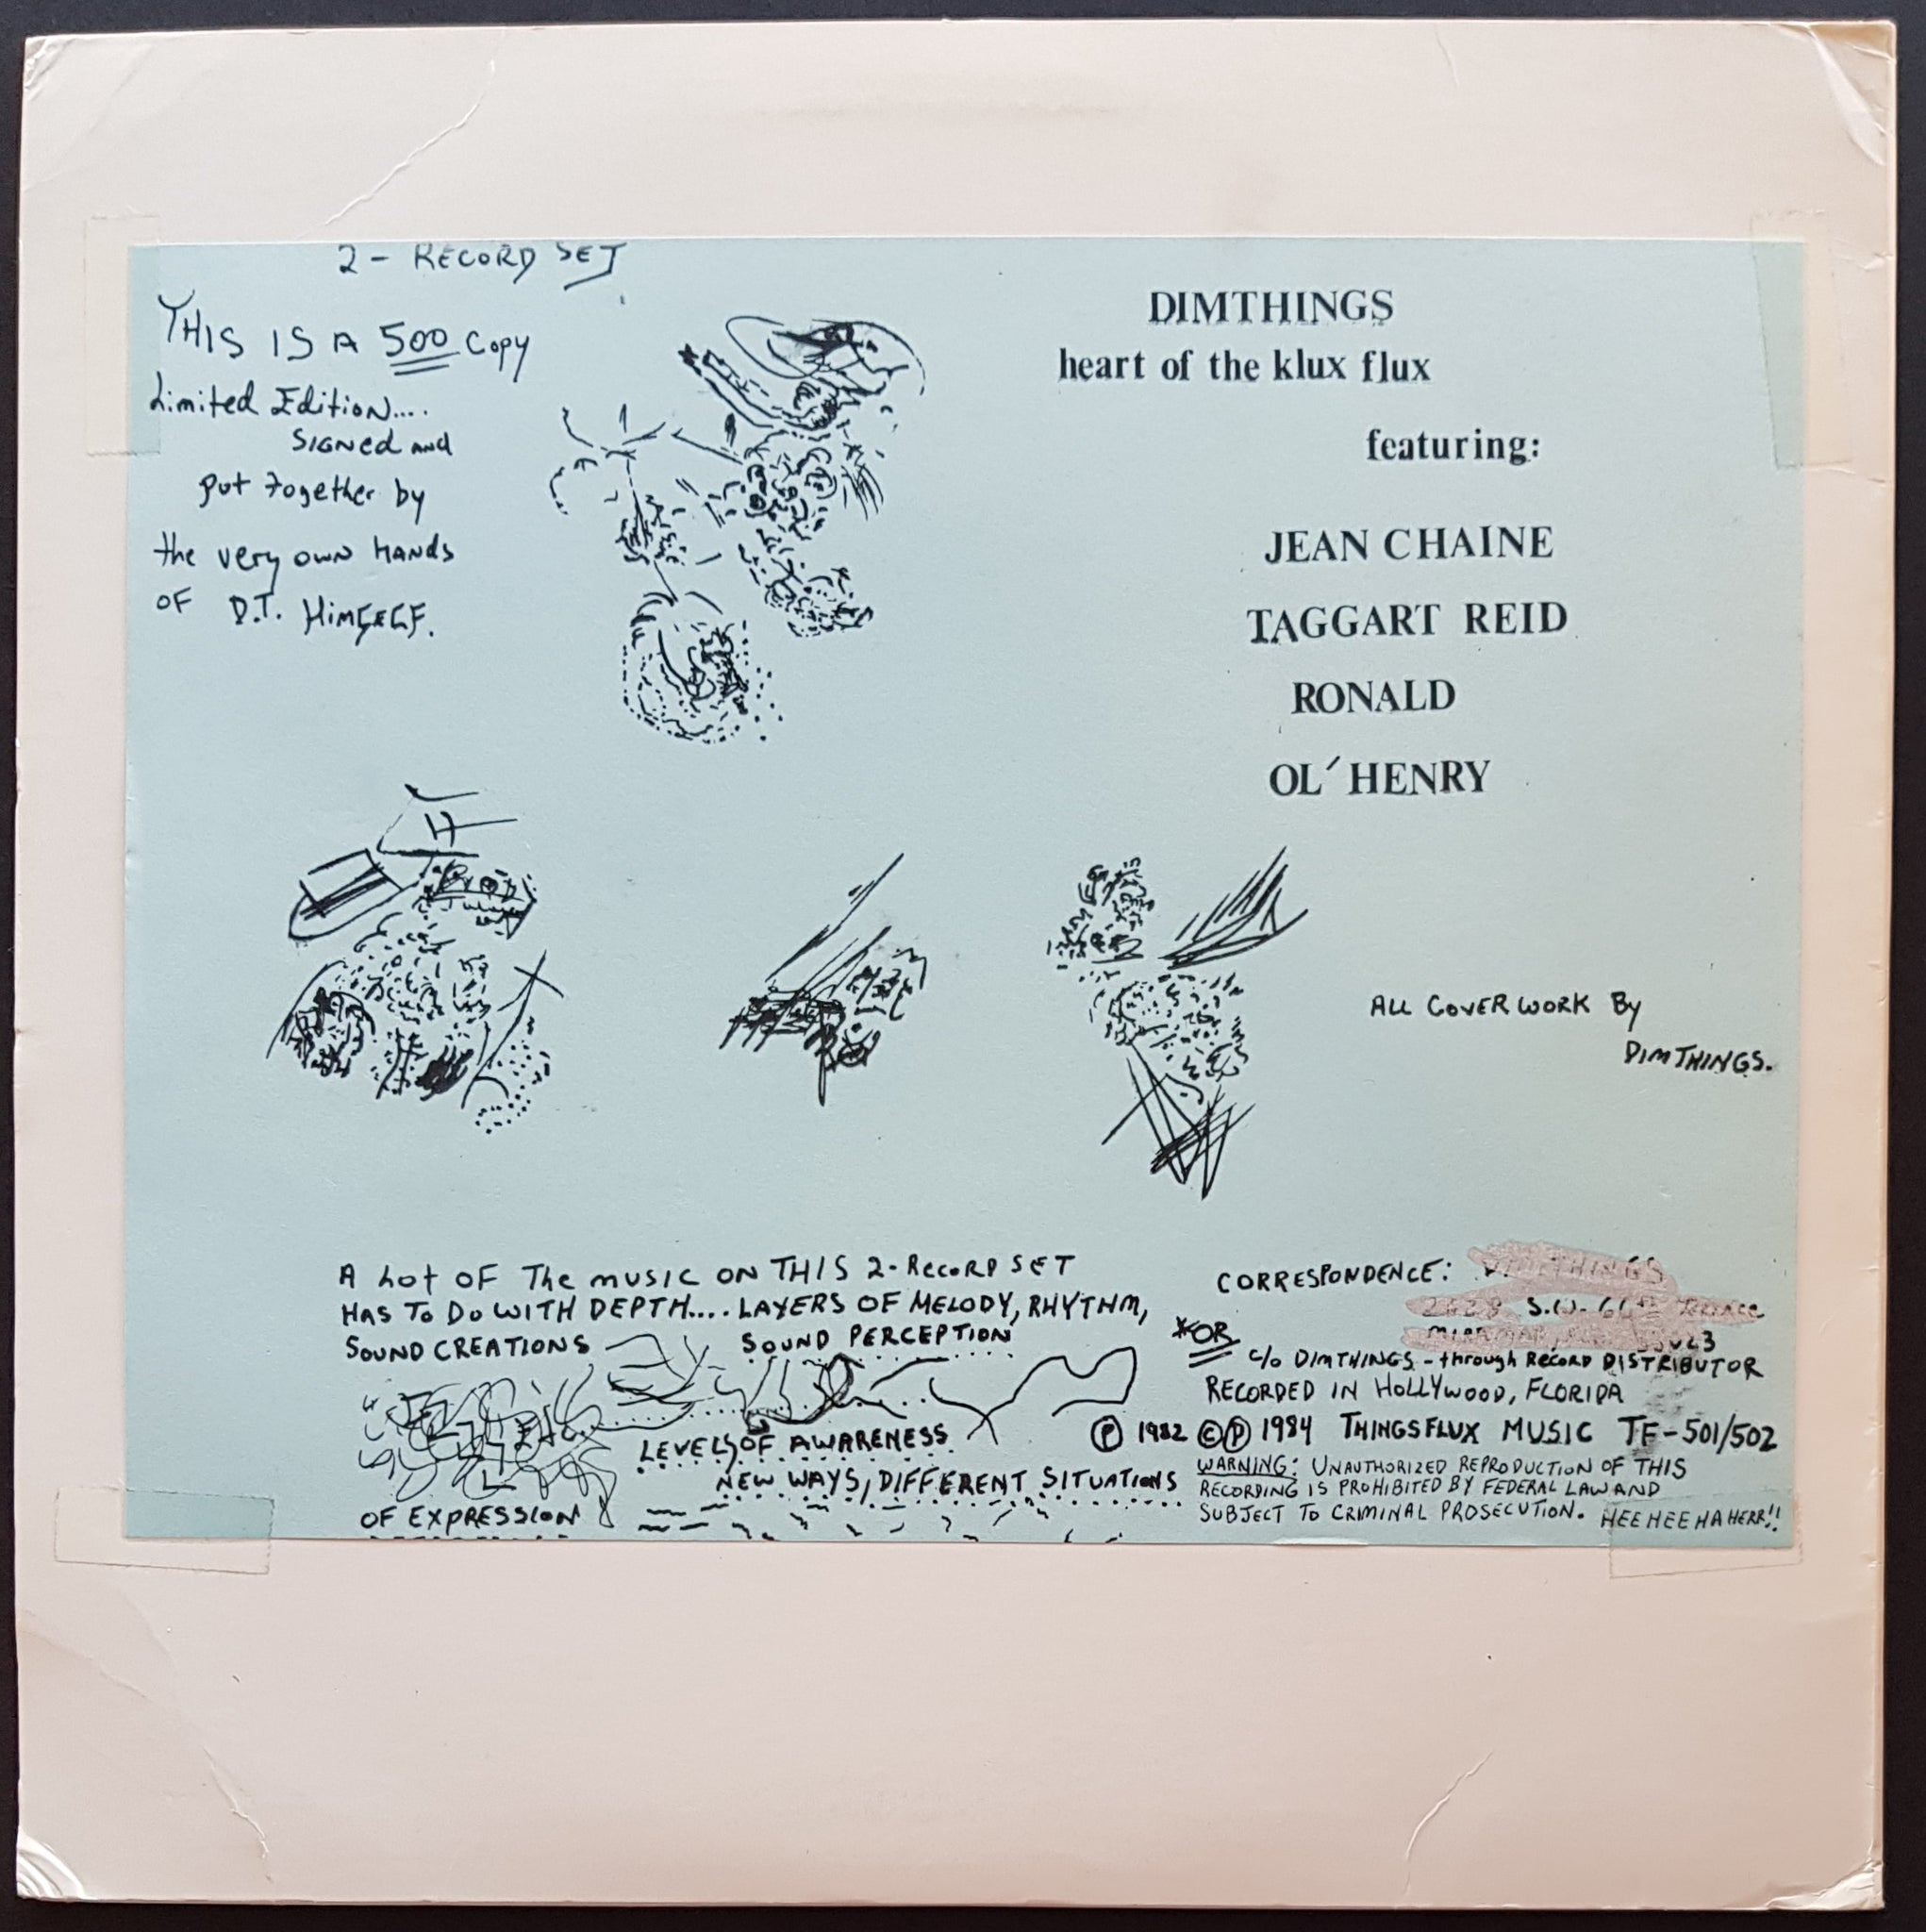 2 - RECORD SET
THIS IS A 500 Copy
Limited Edition....
SIGNed and
put together by
the very own HANDS
OF D.T. HIMSELF.
DIMTHINGS
heart of the klux flux
featuring:
JEAN CHAINE
TAGGART REID
RONALD
OL´HENRY
H
ALL COVER WORK By
DIMTHINGS.
A Lot OF The music ON THIS 2-RECORD SET
HAS TO DO WITH DEPTH.... LAYERS OF MELODY, RHYTHM,
SOUND CREATIONS SOUND PERCEPTION
LEVELS OF AWARENESS
NEW WAYS, DIFFERENT SITUATIONS
OF EXPRESSION
CORRESPONDENCE: DIMTHINGS
S.W. Terrace
MIRAMAR
*OR
c/o DIMTHINGS - through RECORD DISTRIBUTOR
RECORDED IN HOLLYWOOD, FLORIDA
Ⓟ 1982 ©Ⓟ 1984 THINGSFLUX MUSIC TF-501/502
WARNING: UNAUTHORIZED REPRODUCTION OF THIS
RECORDING IS PROHIBITED BY FEDERAL LAW AND
SUBJECT TO CRIMINAL PROSECUTION. HEE HEE HA HERR!!